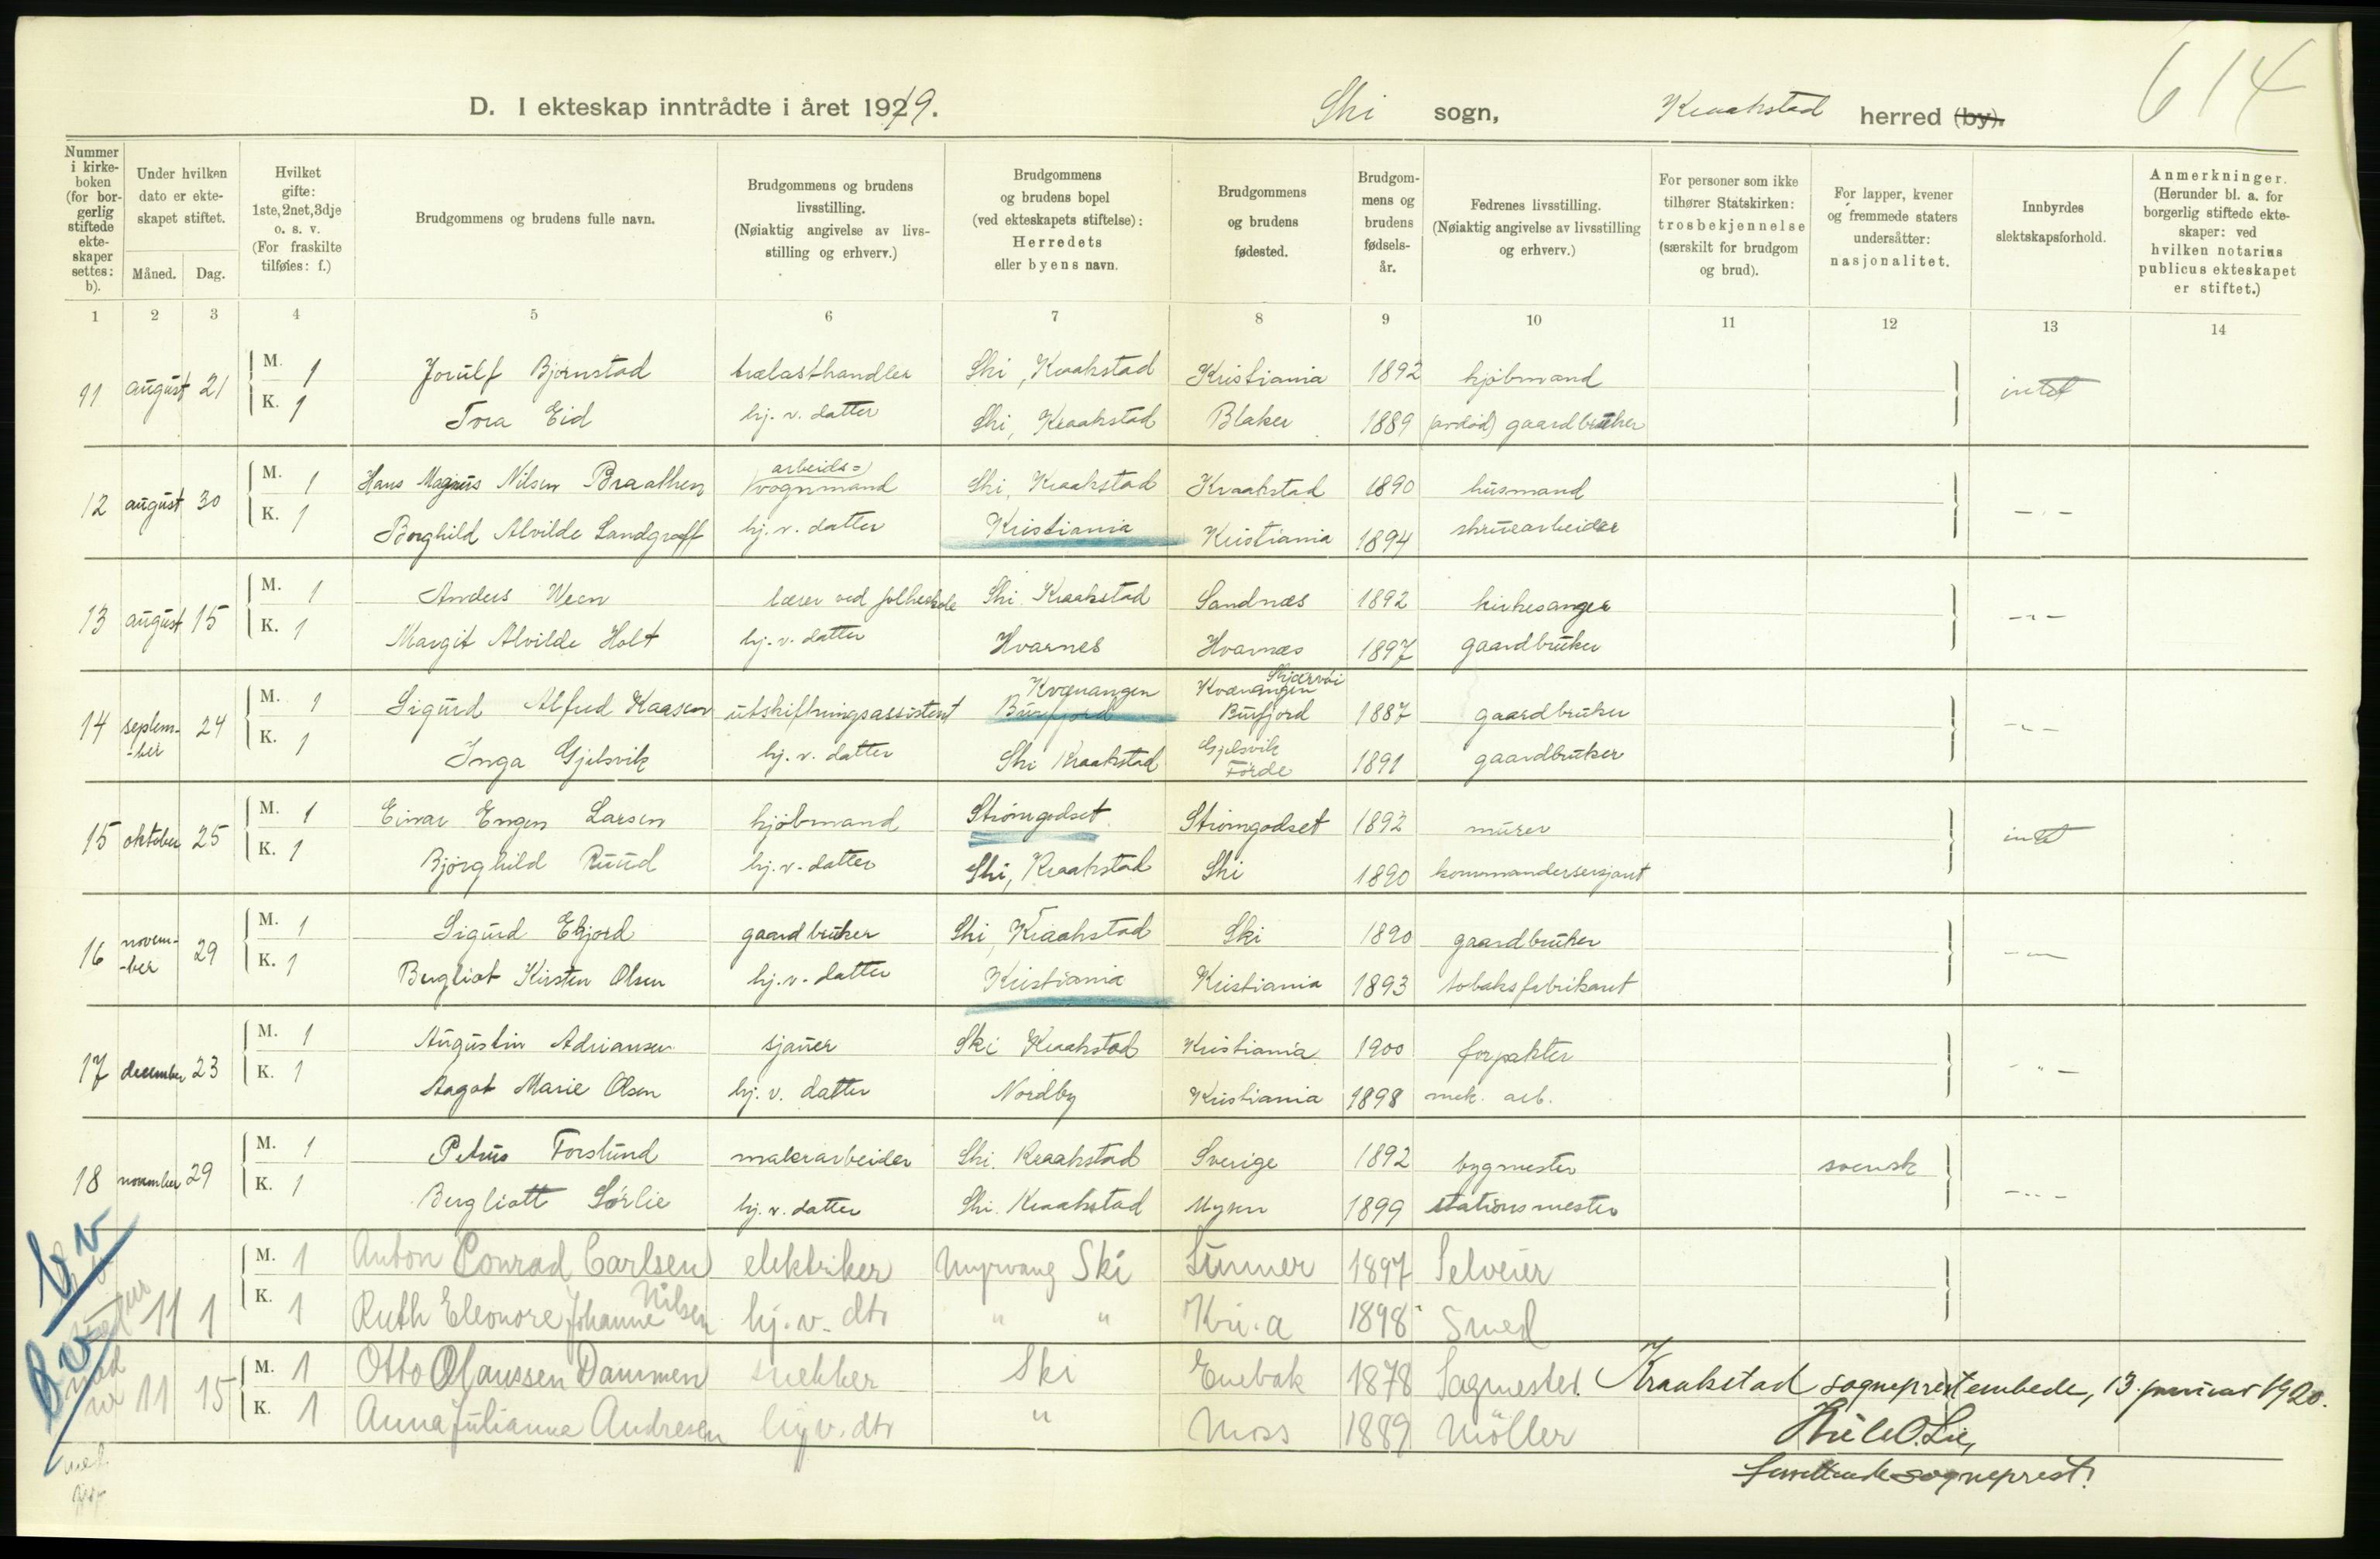 614
D. I ekteskap inntrådte i året 1919. Ski sogn, Kraakstad herred (by).
Nummer i kirkeboken (for borgerlig stiftede ekteskaper settes: b).
Under hvilken dato er ekteskapet stiftet.
Måned. Dag.
Hvilket gifte: 1ste, 2net, 3dje o. s. v. (For fraskilte tilføies: f.)
Brudgommens og brudens fulle navn.
Brudgommens og brudens livsstilling. (Nøiaktig angivelse av livsstilling og erhverv.)
Brudgommens og brudens bopel (ved ekteskapets stiftelse): Herredets eller byens navn.
Brudgommens og brudens fødested.
Brudgommens og brudens fødselsår.
Fedrenes livsstilling. (Nøiaktig angivelse av livsstilling og erhverv.)
For personer som ikke tilhører Statskirken: trosbekjennelse (særskilt for brudgom og brud).
For lapper, kvener og fremmede staters undersåtter: nasjonalitet.
Innbyrdes slektskapsforhold.
Anmerkninger. (Herunder bl. a. for borgerlig stiftede ekteskaper: ved hvilken notarius publicus ekteskapet er stiftet.)
1 2 3 4 5 6 7 8 9 10 11 12 13 14
11 august 21 M. 1 Jorulf Bjørnstad trælasthandler Ski, Kraakstad Kristiania 1892 kjøbmand intet
K. 1 Tora Eid hj. v. datter Ski, Kraakstad Blaker 1889 (avdød) gaardbruker
12 august 30 M. 1 Hans Magnus Nilsen Braathen arbeids= vognmand Ski, Kraakstad Kraakstad 1890 husmand -"-
K. 1 Borghild Alvilde Landgraff hj. v. datter Kristiania Kristiania 1894 skruearbeider
13 august 15 M. 1 Anders Ween lærer ved folkeskole Ski Kraakstad Sandnæs 1892 kirkesanger -"-
K. 1 Margit Alvilde Holt hj. v. datter Hvarnes Hvarnæs 1897 gaardbruker
14 septem-ber 24 M. 1 Sigurd Alfred Kaasen utskiftningsassistent Kvænangen Burfjord Kvænangen Skjærvøi Burfjord 1887 gaardbruker -"-
K. 1 Inga Gjelsvik hj. v. datter Ski Kraakstad Gjelsvik Førde 1891 gaardbruker
15 oktober 25 M. 1 Einar Engen Larsen kjøbmand Strømgodset Strømgodset 1892 murer intet
K. 1 Bjørghild Ruud hj. v. datter Ski, Kraakstad Ski 1890 kommandersersjant
16 novem-ber 29 M. 1 Sigurd Ekjord gaardbruker Ski, Kraakstad Ski 1890 gaardbruker -"-
K. 1 Bergliot Kirsten Olsen hj. v. datter Kristiania Kristiania 1893 tobaksfabrikant
17 december 23 M. 1 Augustin Adriansen sjauer Ski Kraakstad Kristiania 1900 forpakter -"-
K. 1 Aagot Marie Olsen hj. v. datter Nordby Kristiania 1898 mek. arb.
18 november 29 M. 1 Petrus Forslund malerarbeider Ski, Kraakstad Sverige 1892 bygmester svensk -"-
K. 1 Bergliott Sørlie hj. v. datter Ski Kraakstad Mysen 1899 stationsmester
b v 11 1 M. 1 Anton Conrad Carlsen elektriker Myrvang Ski 1897 Selveier
K. 1 Ruth Eleonore Johanne Nilsen hj. v. dtr " " Kri.a 1898 Smed
b v 11 15 M. 1 Otto Olaussen Dammen snekker Ski Enebak 1878 Sagmester
K. 1 Anna Julianne Andresen hj v. dtr " Moss 1889 Möller
Kraakstad sogneprestembede, 13 januar 1920.
Lie,
sogneprest.